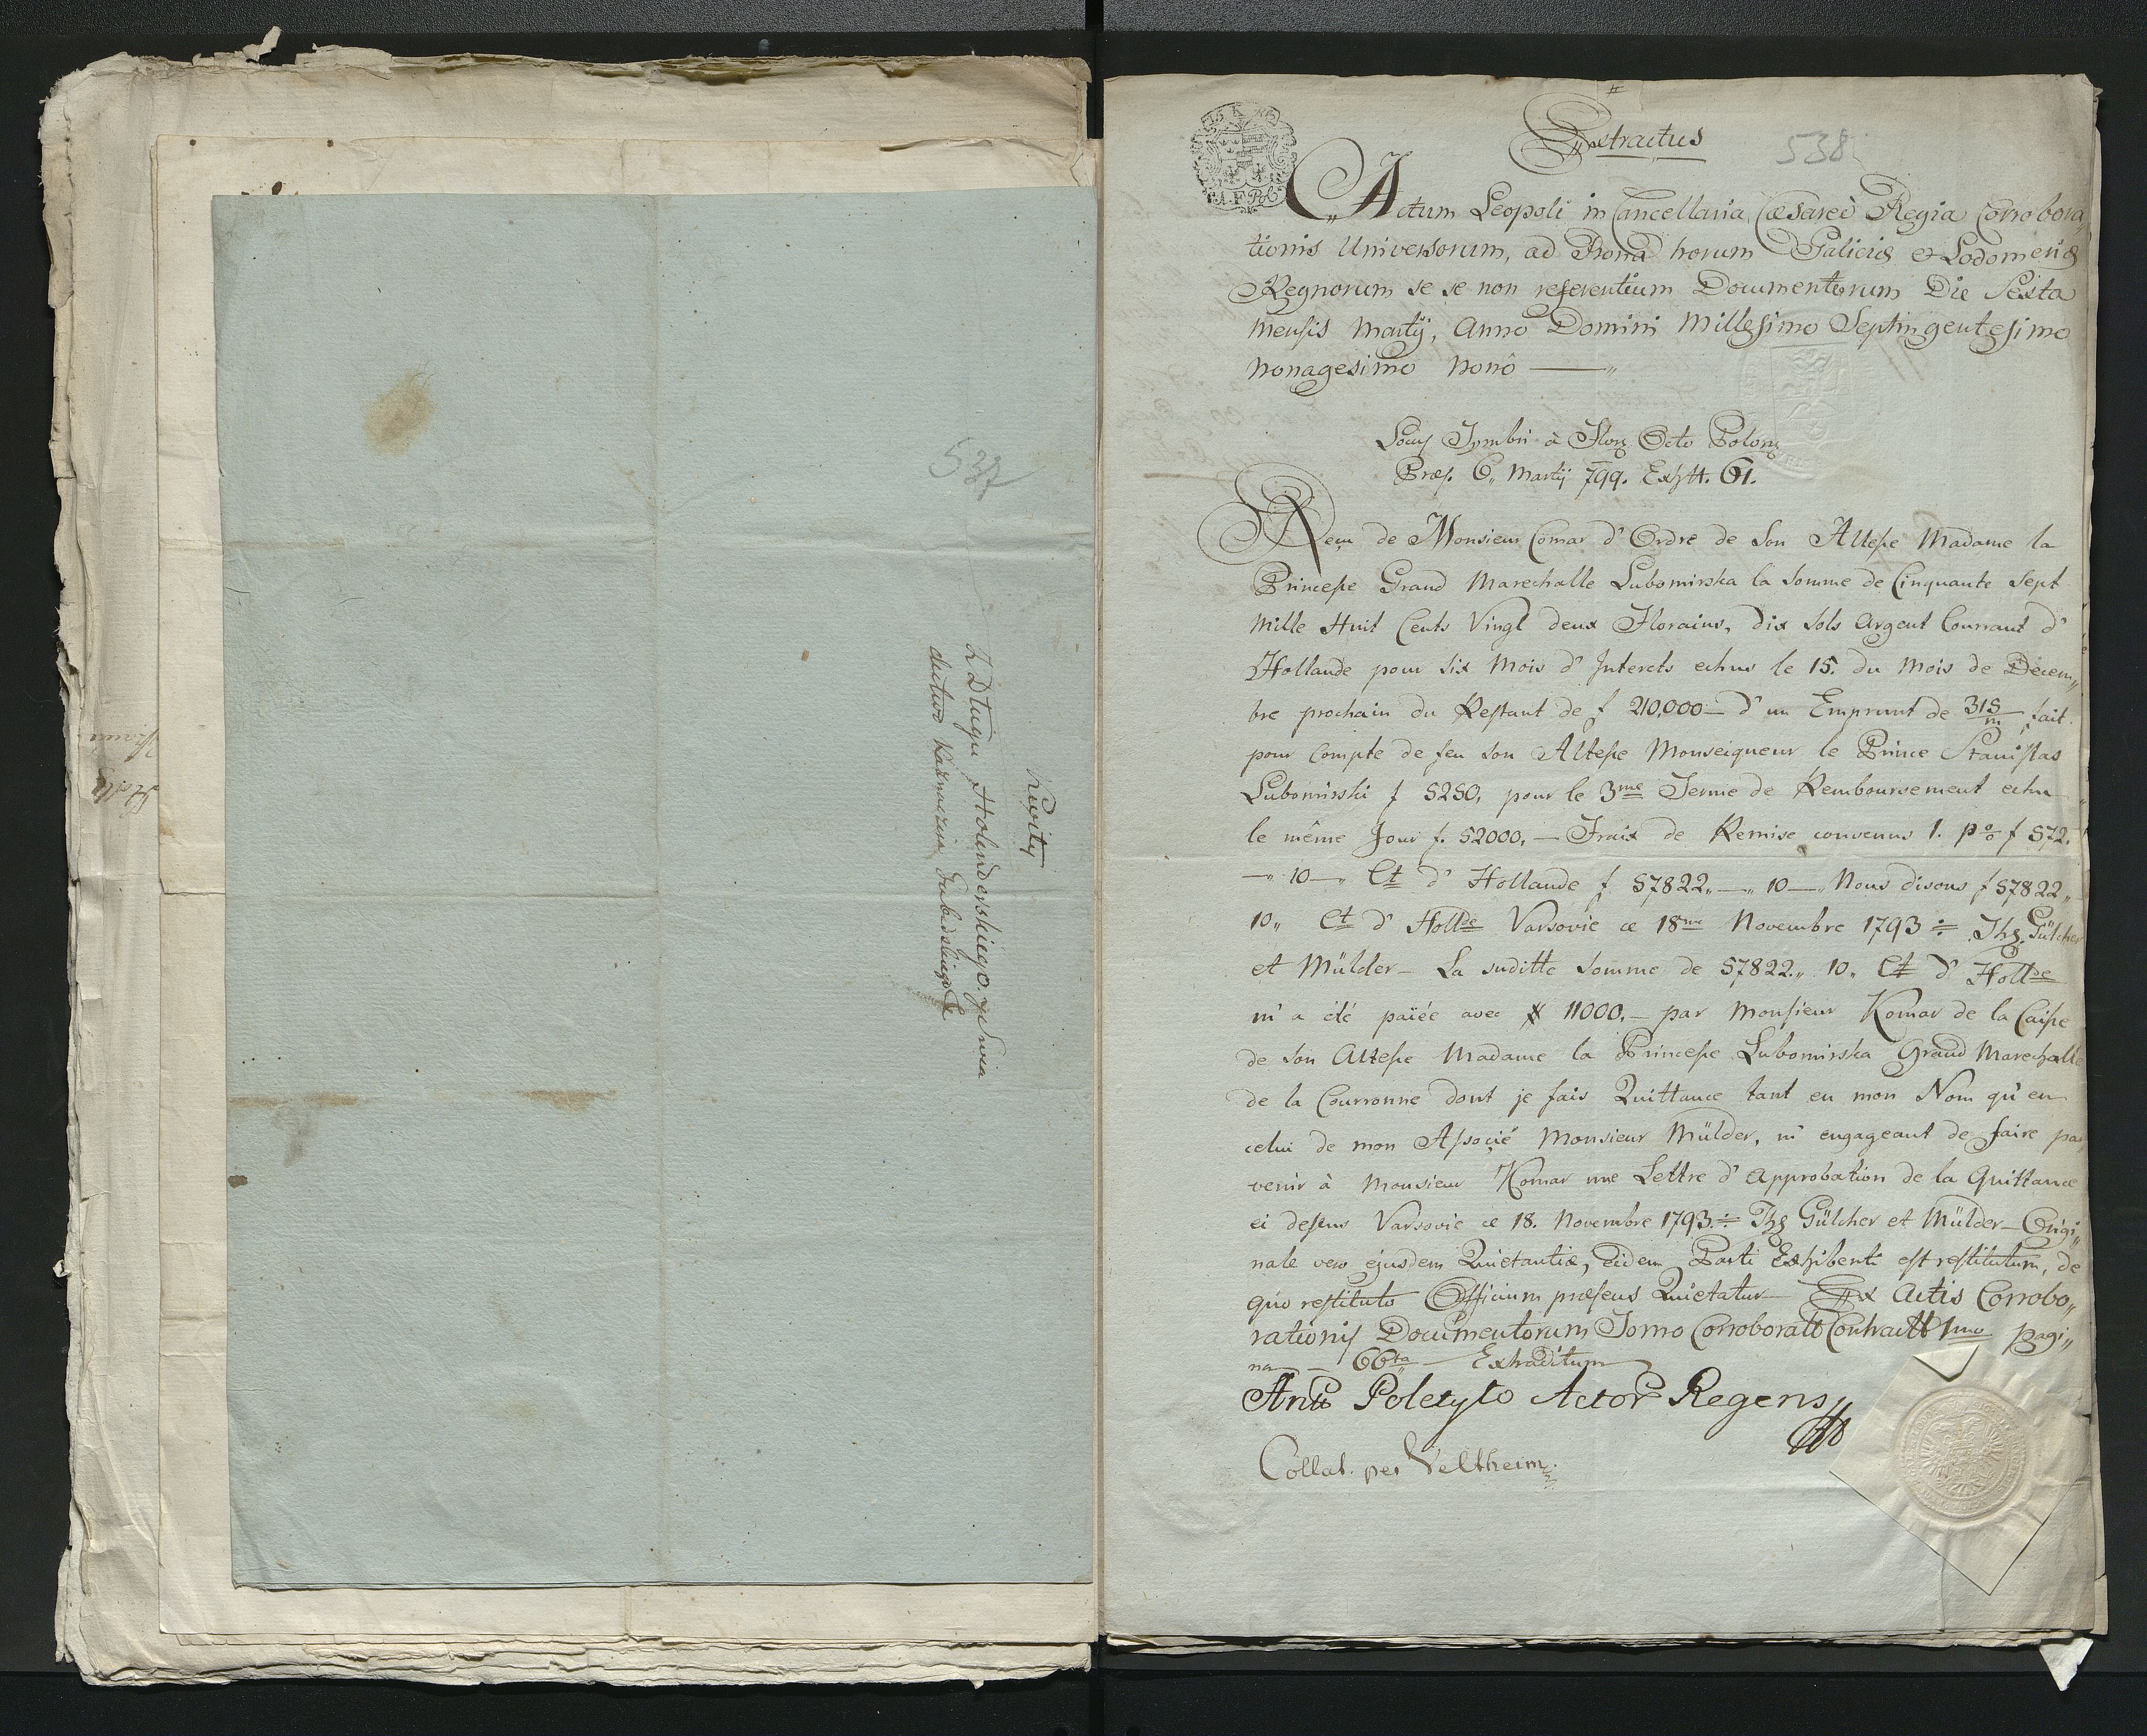 537
Kwity
Z Długu Holenderskiego
538
Extractus
Actum Leopoli in Cancellaria Cæsareo Regia Corrobora„
tionis Universorum, ad Fora horum Galiciæ et Lodomeriæ
Regnorum se se non referentium Documentorum Die Sexta
Mensis Martij, Anno Domini Millesimo Septingentesimo
Nonagesimo Nonô
Locus Tymbri à Flor Octo Polon
Præs. 6„ Martij 799. Exhtt. 61.
Reçu de Monsieur Comar d'Ordre de Son Altesse Madame la
Princesse Grand Marechalle Lubomirska la Somme de Cinquante Sept
Mille Huit Cents Vingt deux Florains, dix Sols Argent Courrant d'
Hollande pour Six Mois d'Interets echus le 15. du Mois de Decem„
bre prochain du Restant de f 210,000 — d'un Emprunt de 315/m fait
pour Compte de feu Son Altesse Monseigneur le Prince Stanislas
Lubomirski f 5250, pour le 3me Terme de Remboursement echu
le même Jour f. 52000, — Frais de Remise convenus 1. p% f 572.
—„ 10 —„ Ct d'Hollande f 57822„ —„ 10 —„ Nous disons f 57822„
10„ Ct d'Hollde Varsovie ce 18me Novembre 1793 ÷ Ths. Gülcher
et Mülder — La suditte Somme de 57822„ 10„ Ct d'Hollde
m'a été païée avec # 11000, — par Monsieur Komar de la Caisse
de Son Altesse Madame la Princesse Lubomirska Grand Marechalle
de la Courronne dont je fais Quittance tant en mon Nom qu'en
celui de mon Associé Monsieur Mülder, m'engageant de faire par
venir à Monsieur Komar une Lettre d'Approbation de la Quittance
ci dessus Varsovie ce 18. Novembre 1793. ÷ Ths Gülcher et Mülder — Origi„
nale vero ejusdem Quietantiæ, eidem Parti Exhibenti est restitutum, de
quo restituto Officium præsens Quietatur — Ex Actis Corrobo„
rationis Documentorum Tomo Corroboratt Contractt 1mo pagi„
na — 66ta — Extraditum
Poletyło Actor Regens
Collat. per Veltheim